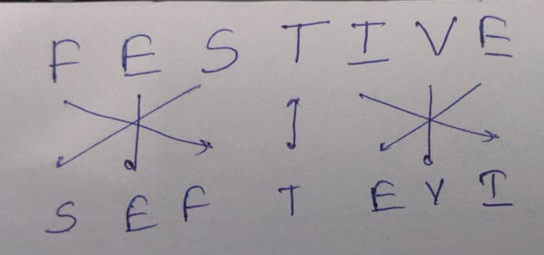 F E S T I V E
S E F T E V I